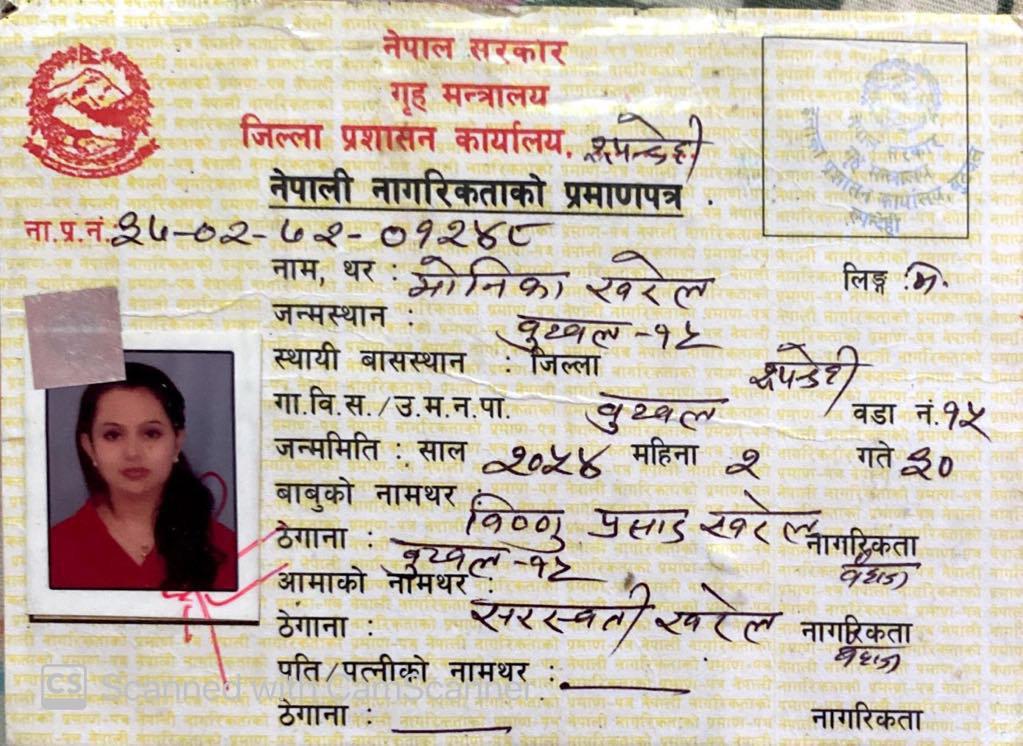 नेपाल सरकार
गृह मन्त्रालय
जिल्ला प्रशासन कार्यालय, रुपन्देही
नेपाली नागरिकताको प्रमाणपत्र .
ना.प्र.नं. ३५-०२-७२-०१२४८
नाम, थर : मोनिका खरेल लिङ्ग : म.
जन्मस्थान : बुटवल -१५
स्थायी बासस्थान : जिल्ला रुपन्देही
गा.वि.स./उ.म.न.पा. बुटवल वडा नं. १५
जन्ममिति : साल २०५४ महिना २ गते ३०
बाबुको नामथर : विष्णु प्रसाद खरेल
ठेगाना : बुटवल -१५ नागरिकता वंशज
आमाको नामथर : सरस्वती खरेल
ठेगाना : नागरिकता वंशज
पति/पत्नीको नामथर :
ठेगाना : नागरिकता
CS Scanned with CamScanner